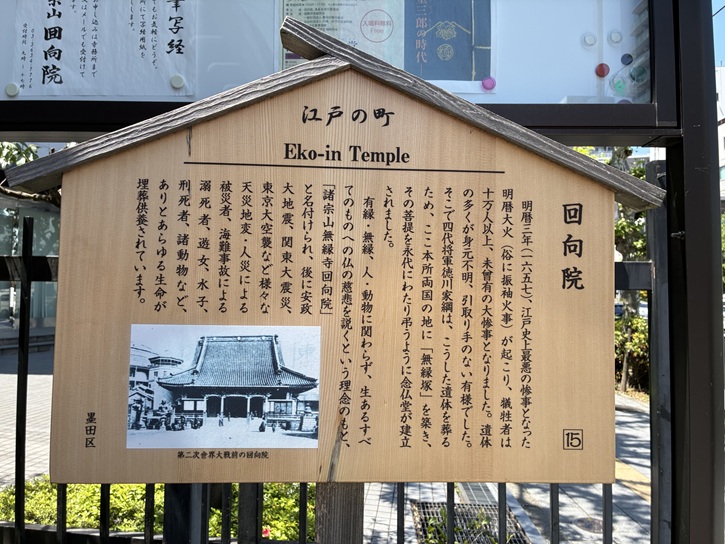 江戸の町
Eko-in Temple
回向院
明暦三年(一六五七)、江戸史上最悪の惨事となった
明暦大火(俗に振袖火事)が起こり、犠牲者は
十万人以上、未曾有の大惨事となりました。遺体
の多くが身元不明、引取り手のない有様でした。
そこで四代将軍徳川家綱は、こうした遺体を葬る
ため、ここ本所両国の地に「無縁塚」を築き、
その菩提を永代にわたり弔うように念仏堂が建立
されました。
有縁・無縁、人・動物に関わらず、生あるすべ
てのものへの仏の慈悲を説くという理念のもと、
「諸宗山無縁寺回向院」
と名付けられ、後に安政
大地震、関東大震災、
東京大空襲など様々な
天災地変・人災による
被災者、海難事故による
溺死者、遊女、水子、
刑死者、諸動物など、
ありとあらゆる生命が
埋葬供養されています。
第二次世界大戦前の回向院
墨田区
15
写経
回向院
三郎の時代
入場料無料
Free